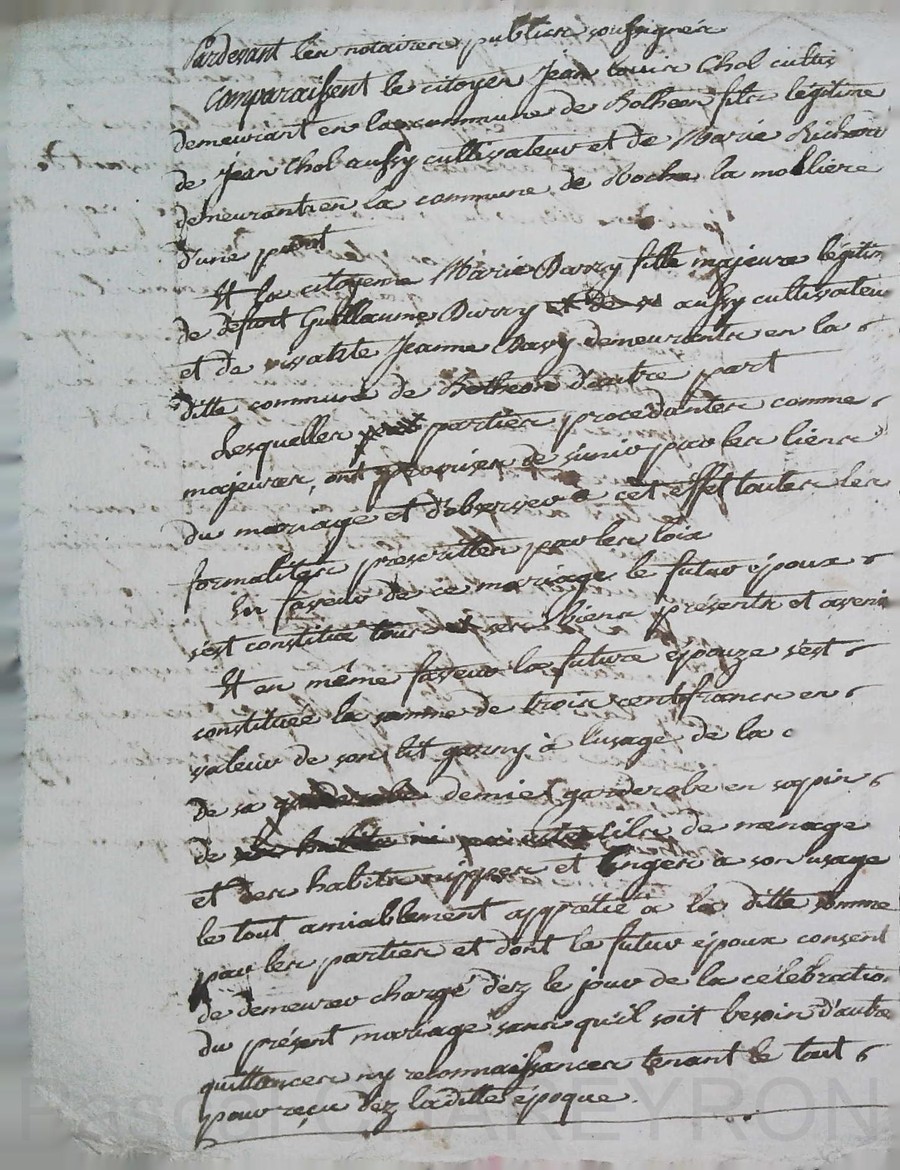 Pardevant les notaires publics soussignés
Comparaissent le citoyen Jean Louis Chol cultiv
demeurant en la commune de Rotheon fils légitime
de Jean Chol aussy cultivateur et de Marie Richard
demeurants en la commune de Roche la moliere
d'une part
Et la citoyene Marie Davry fille majeure légitim
de defunt Guillaume Durry et de aussy cultivateur
et de Jeanne Davy demeurants en la
ditte commune de Rotheon d'autre part
Lesquelles parties procedantes comme
majeures, ont promises de s'unir par les liens
du mariage et d'observer a cet effet toutes les
formalites prescrittes par les loix
En faveur de ce mariage le futur époux
s'est constitué tous et ses biens présents et aveni
Et en même faveur la future épouze s'est
constituée la somme de trois cent francs en
valeur de son lit garny à l'usage de la
De sa demie garderobe en sapin
de de menage
et des habits nippes et linges a son usage
le tout amiablement apprétié a la ditte somme
par les parties et dont le futur époux consent
de demeurer chargé dez le jour de la célébratio
du présent mariage sans qu'il soit besoin d'autre
quittances ny reconnaissances tenant le tout
pour reçu dez laditte époque.
Pascal CHAREYRON